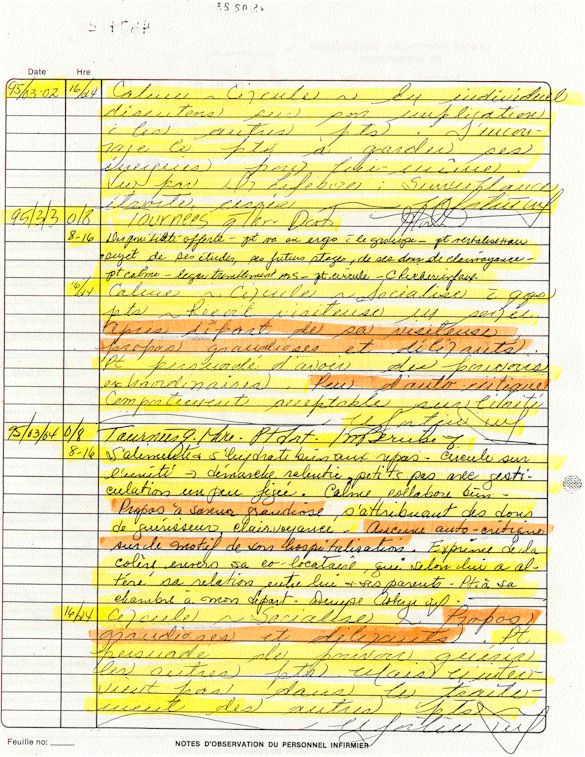 Date Hre
95/03-02 16/24 Calme ~ Circule ~ En individuel
discutons en son implication
c̄ les autres pts. J'encou-
rage le pte à garder ses
énergies pour lui-même.
Vu par Dr Lefebvre : Surveillance
étroite
95/3/3 0/8 Tournées q 1 hre Dort
8-16 Disponibilité offerte - pt va en ergo c̄ le groupe - pt verbalise au
sujet de ses études, ses futurs stages, de ses dons de clairvoyance -
pt calme - léger tremblement ms - pt circule -
16/24 Calme ~ Circule ~ Socialise c̄ qqs
pts ~ Reçoit visiteuse en soirée
Après départ de sa visiteuse
propos grandioses et délirants.
Pt persuadé d'avoir des pouvoirs
extraordinaires. Peu d'auto-critique
Comportement acceptable sur l'unité
95/03/04 0/8 Tournées q. 1 hre. Pt dort.
8-16 S'alimente & s'hydrate bien aux repas - Circule sur
l'unité → démarche ralentie, petits pas avec gesti-
culation un peu figée. Calme collabore bien -
Propos à saveur grandiose s'attribuant des dons
de guérisseur, clairvoyance. Aucune auto-critique
sur le motif de son hospitalisation. Exprime de la
colère envers sa co-locataire, qui selon lui a al-
téré sa relation entre lui & ses parents - Pt à sa
chambre à mon départ - Denyse
16/24 Circule ~ Socialise ~ Propos
grandioses et délirants. Pt
persuadé de pouvoir guérir
les autres pts Mais n'inter-
vient pas dans le traite-
ment des autres pts.
Feuille no:
NOTES D'OBSERVATION DU PERSONNEL INFIRMIER